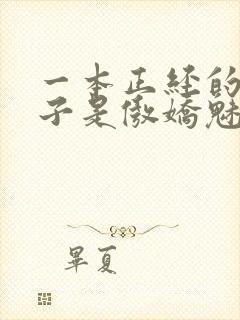 一本正经的
子是傲嬌魅
畢夏